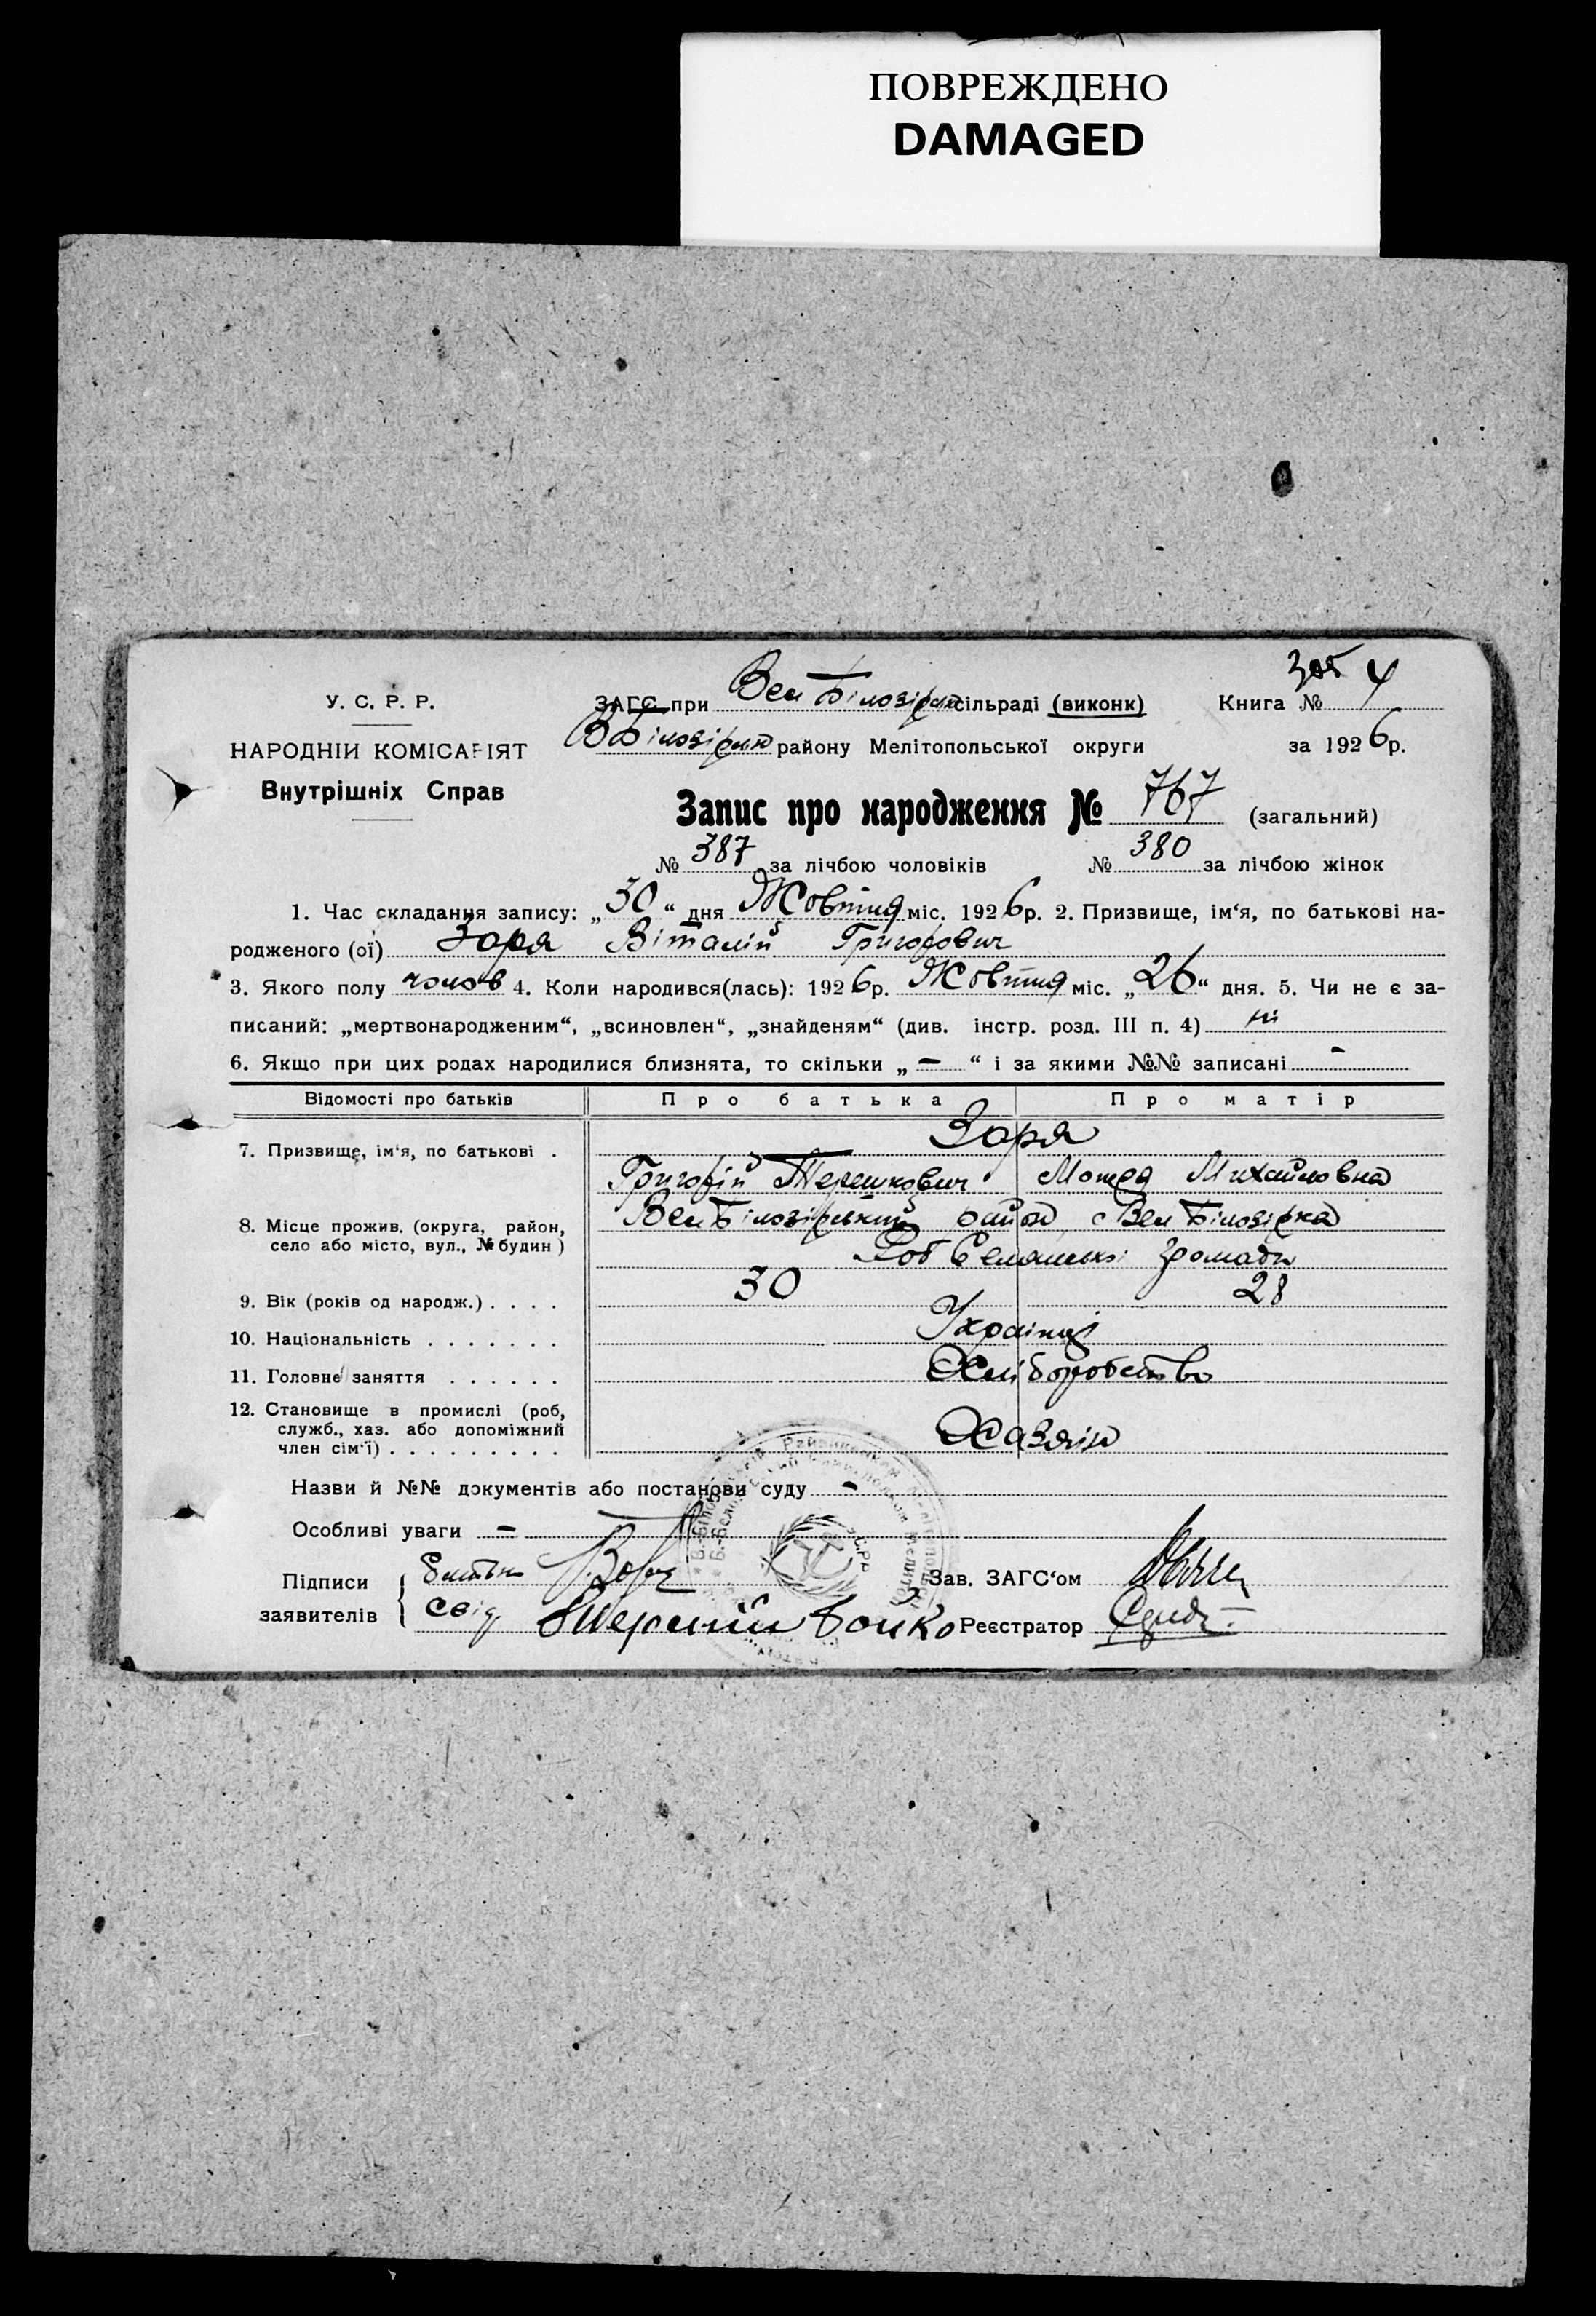 ПОВРЕЖДЕНО
DAMAGED
У. С. Р. Р.
НАРОДНІЙ КОМІСАРІЯТ
Внутрішніх Справ
ЗАГС при Вел Білозірск сільраді (виконк)
Книга № 4
ВБілозірск району Мелітопольської округи
за 1926р.
Запис про народження № 767 (загальний)
№ 387 за лічбою чоловіків № 380 за лічбою жінок
1. Час складання запису: „30“ дня Жовтня міс. 1926р. 2. Призвище, ім‘я, по батькові на-
родженого (ої) Заря Віталій Григорович
3. Якого полу чолов 4. Коли народився(лась): 1926р. Жовтня міс. „26“ дня. 5. Чи не є за-
писаний: „мертвонародженим“, „всиновлен“, „знайденям“ (див. інстр. розд. III п. 4) ні
6. Якщо при цих родах народилися близнята, то скільки „ — “ і за якими №№ записані -
Відомості про батьків Про батька Про матір
7. Призвище, ім‘я, по батькові . Заря
Григорій Терешкович Мотря Михайловна
8. Місце прожив. (округа, район, село або місто, вул., № будин) ВелБілозірський район с Вел Білозірка
громади
9. Вік (років од народж.) . . . . 30 28
10. Національність . . . . . . . Українці
11. Головне заняття . . . . . . Хліборобство
12. Становище в промислі (роб, служб., хаз. або допоміжний член сім‘ї) . . . . . . . . . Хазяін
Назви й №№ документів або постанови суду -
Особливі уваги —
Підписи заявителів
Батьки
Зав. ЗАГС‘ом
свід Бойко Реєстратор